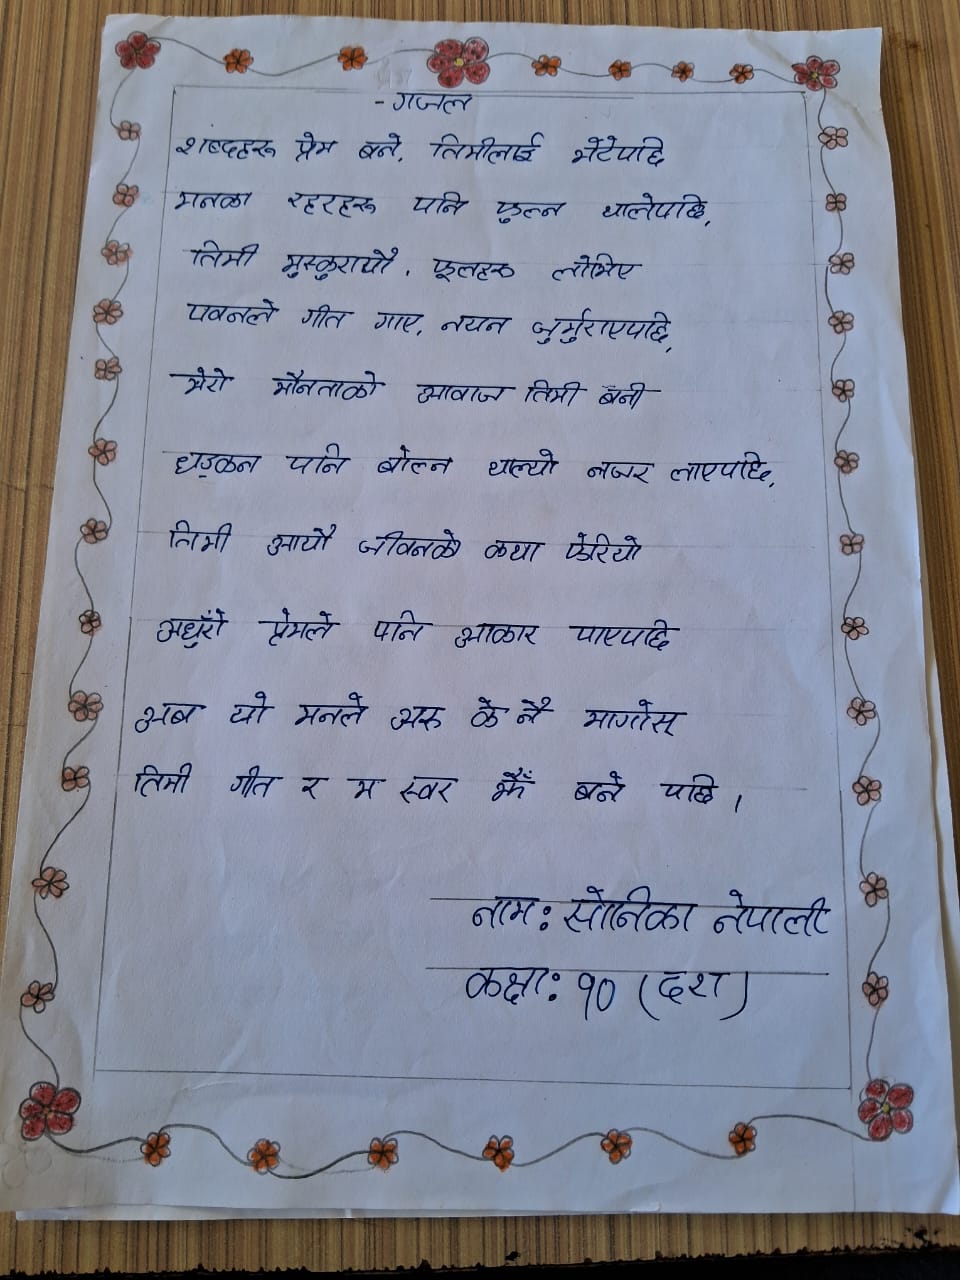 - गजल
शब्दहरू प्रेम बने, तिमीलाई भेटेपछि
मनका रहरहरू पनि फुल्न थालेपछि,
तिमी मुस्कुरायौ, फूलहरू लोभिए
पवनले गीत गाए, नयन जुर्मुराएपछि,
मेरो मौनताको आवाज तिमी बनी
धड्कन पनि बोल्न थाल्यो नजर लाएपछि,
तिमी आयौ जीवनको कथा फेरियो
अधुरो प्रेमले पनि आकार पाएपछि
अब यो मनले अरू के नै मागोस्
तिमी गीत र म स्वर झैँ बने पछि ।
नाम: सोनिका नेपाली
कक्षा: १० (दश)